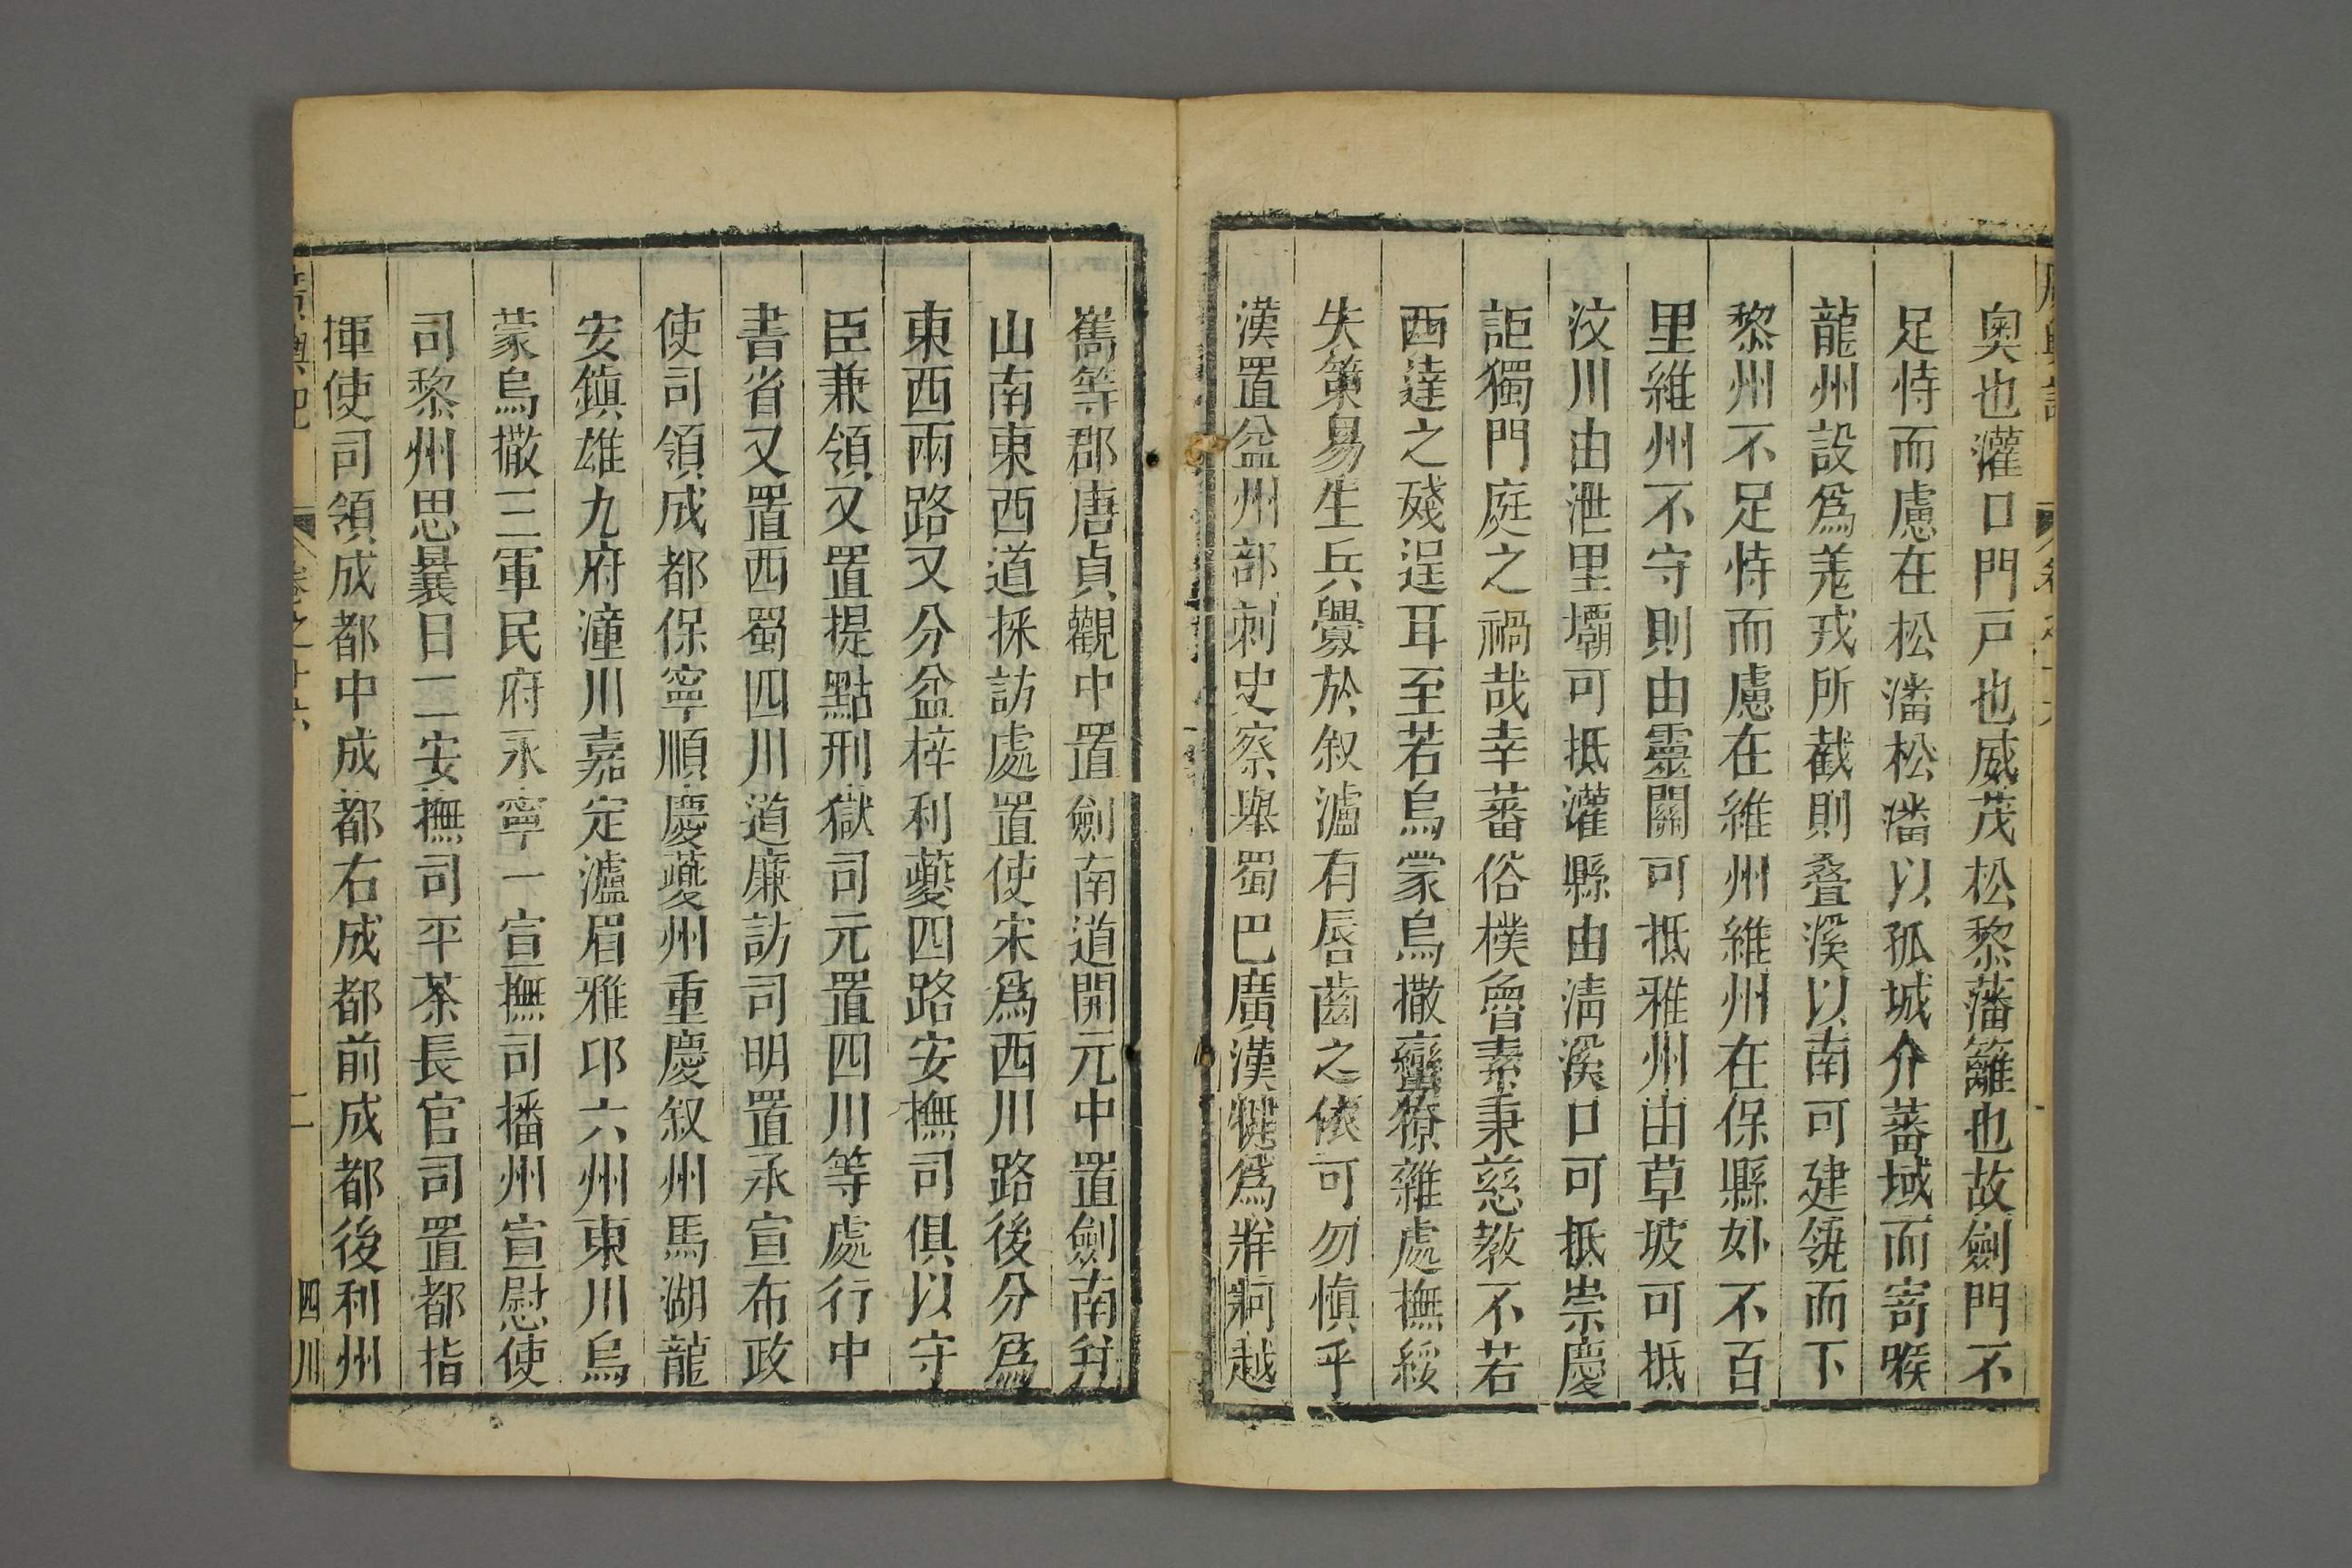 奧也灌口門戸也威茂松黎藩籬也故劍門不
足恃而慮在松潘松潘以孤城介蕃域而寄喉
龍州設爲羌戎所截則叠溪以南可建瓴而下
黎州不足恃而慮在維州維州在保縣外不百
里維州不守則由靈關可抵雅州由草坡可抵
汶川由泄里壩可抵灌縣由清溪口可抵崇慶
詎獨門庭之禍哉幸蕃俗樸魯素秉慈教不若
西達之殘逞耳至若烏蒙烏撒蠻獠雜處撫綏
失策易生兵釁於叙瀘有唇齒之依可勿慎乎
漢置益州部刺史察舉蜀巴廣漢犍爲牂牁越
巂等郡唐貞觀中置劍南道開元中置劍南幷
山南東西道採訪處置使宋爲西川路後分爲
東西兩路又分益梓利夔四路安撫司俱以守
臣兼領又置提點刑獄司元置四川等處行中
書省又置西蜀四川道廉訪司明置承宣布政
使司領成都保寧順慶夔州重慶叙州馬湖龍
安鎮雄九府潼川嘉定瀘眉雅邛六州東川烏
蒙烏撒三軍民府永寧一宣撫司播州宣慰使
司黎州思曩日二安撫司平茶長官司置都指
揮使司領成都中成都右成都前成都後利州
廣輿記 卷之十六 二 四川